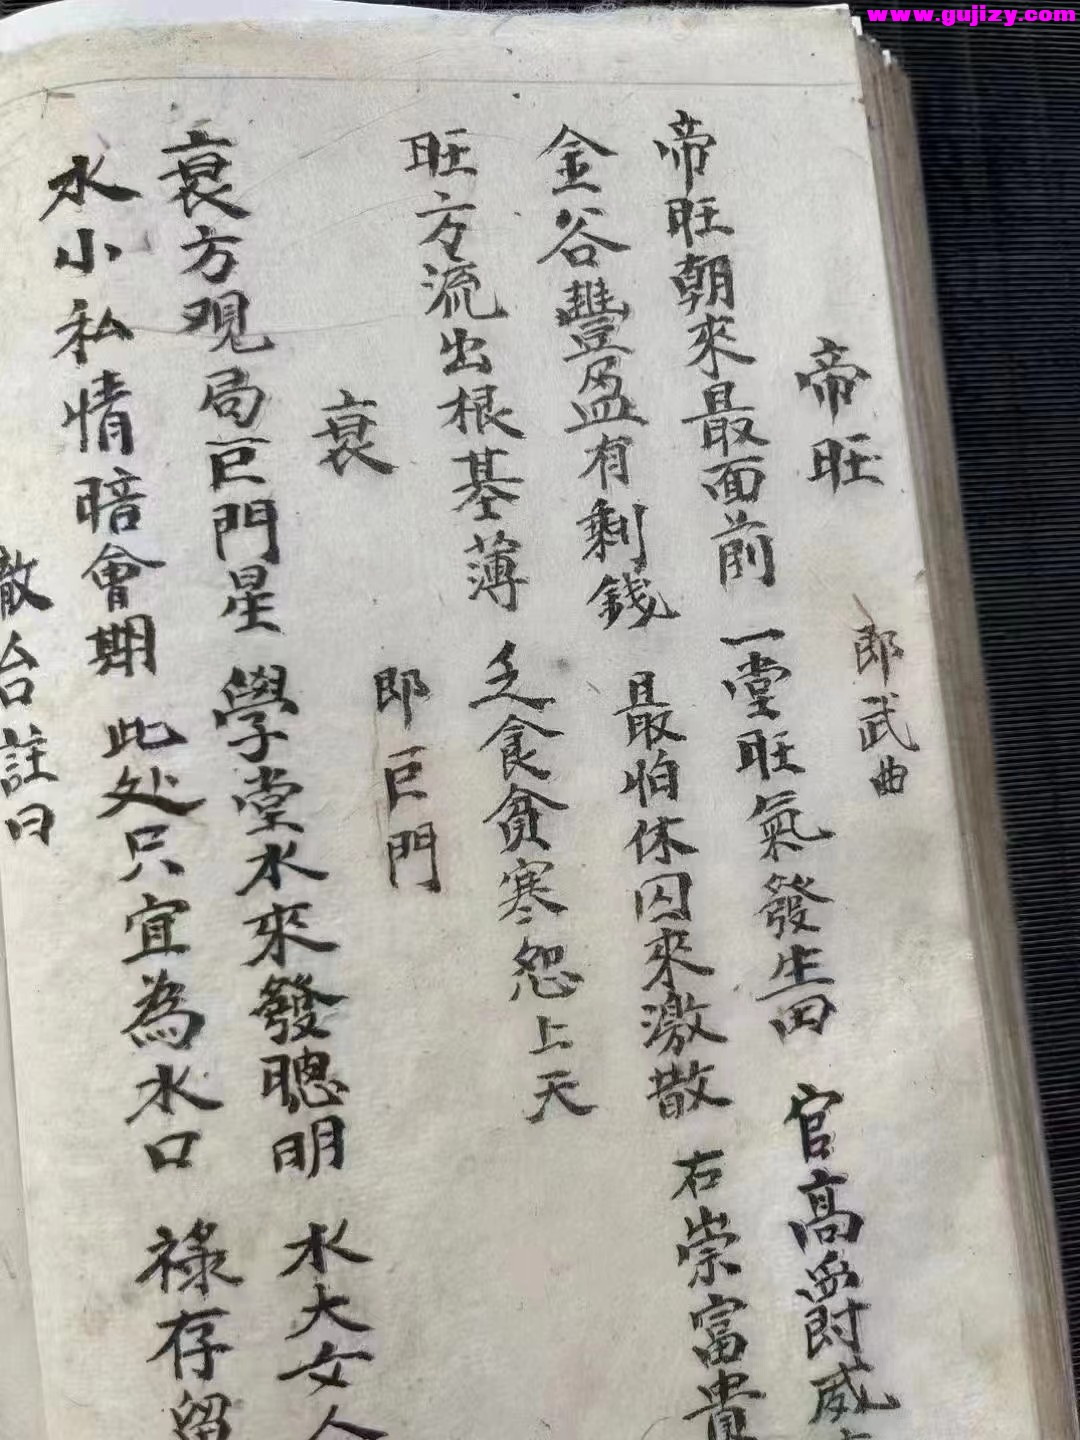 www.gujizy.com
帝旺 即武曲
帝旺朝來最面前 一堂旺氣發生田 官高爵威
金谷豐盈有剩錢 最怕休囚來激散 右崇富貴
旺方流出根基薄 乏食貧寒怨上天
衰 即巨門
衰方观局巨門星 學堂水來發聰明 水大女人
水小私情暗會期 此处只宜為水口 祿存留
散台註曰